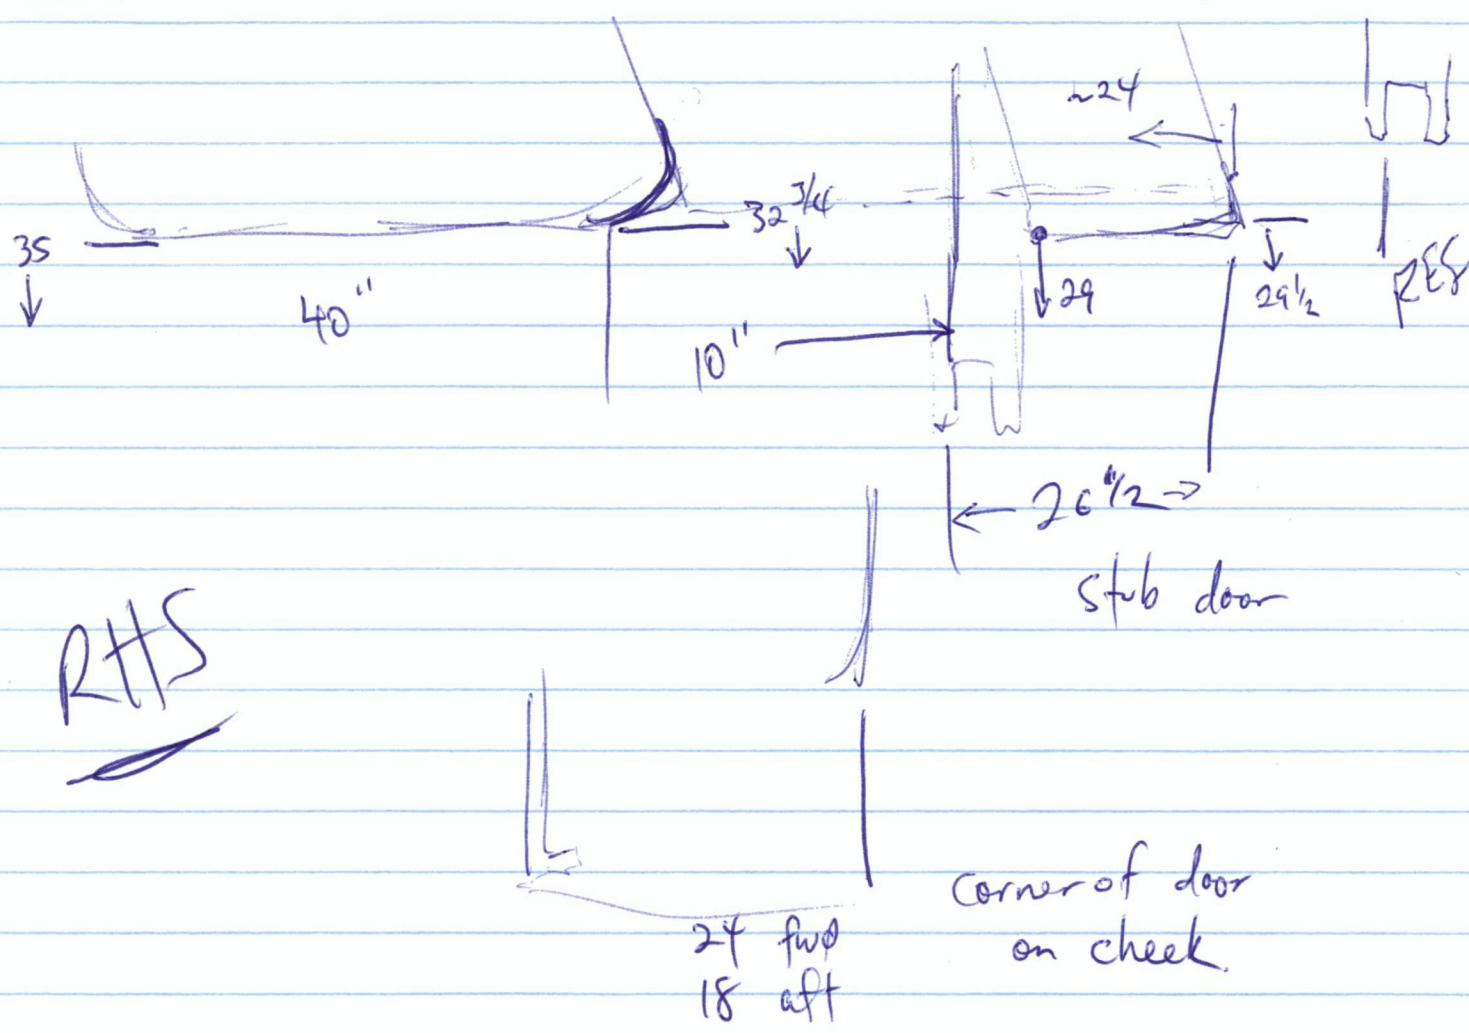 ~24
32 3/4
35
29
29 1/2
RES
40"
10"
26"1/2
stub door
RHS
corner of door
on cheek
24 fwd
18 aft